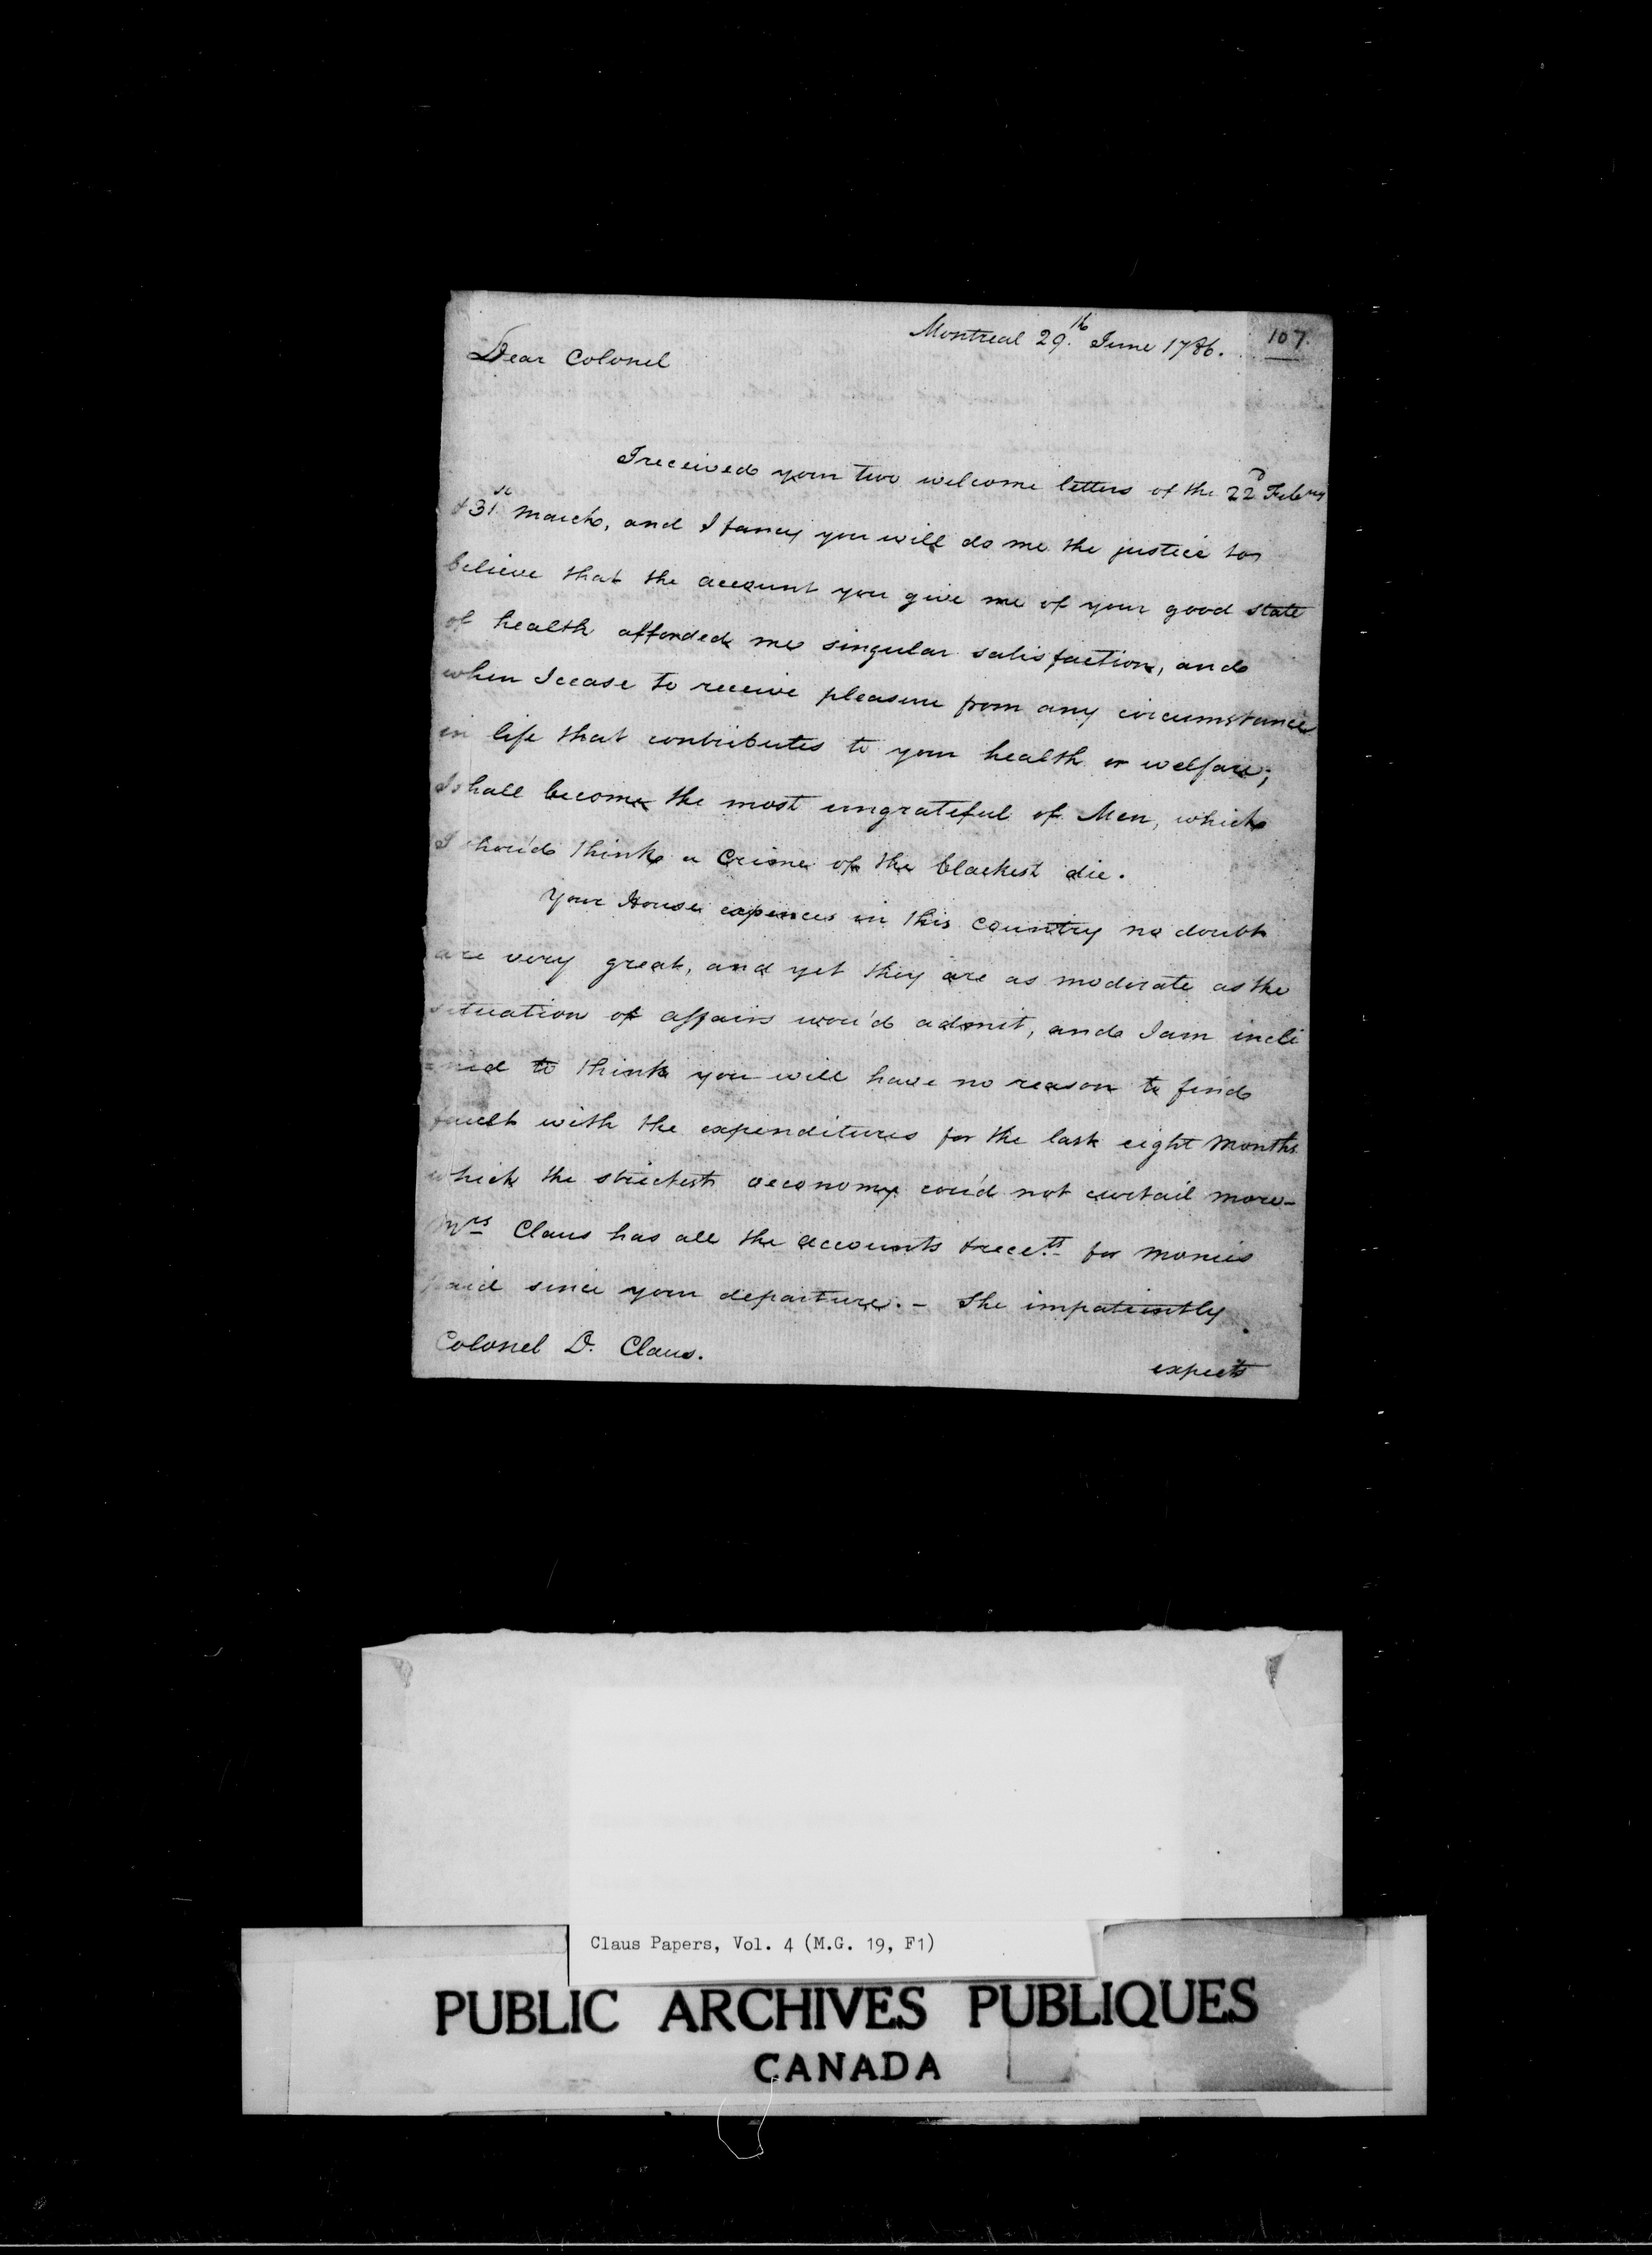 Montreal 29.th June 1786. 107.
Dear Colonel
I received your two welcome letters of the 22d Febry
& 31st March, and I fancy you will do me the justice to
believe that the account you give me of your good state
of health afforded me singular satisfaction, and
when I cease to receive pleasure from any circumstance
in life that contributes to your health or welfare;
I shall become the most ungrateful of Men, which
I shou'd think a Crime of the blackest die.
Your House expences in this Country no doubt
are very great, and yet they are as moderate as the
situation of affairs wou'd admit, and I am incli
=ned to think you will have no reason to find
fault with the expenditures for the last eight Months
which the strictest oeconomy cou'd not curtail more -
Mrs Claus has all the accounts & recets for monies
paid since your departure. - She impatiently
Colonel D. Claus.
expects
Claus Papers, Vol. 4 (M.G. 19, F1)
PUBLIC ARCHIVES PUBLIQUES
CANADA